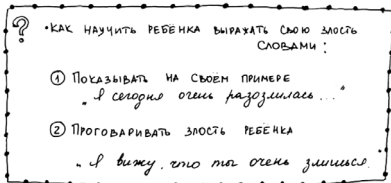 ? • КАК НАУЧИТЬ РЕБЁНКА ВЫРАЖАТЬ СВОЮ ЗЛОСТЬ
СЛОВАМИ:
① ПОКАЗЫВАТЬ НА СВОЁМ ПРИМЕРЕ
„Я сегодня очень разозлилась..."
② ПРОГОВАРИВАТЬ ЗЛОСТЬ РЕБЁНКА
„Я вижу, что ты очень злишься.